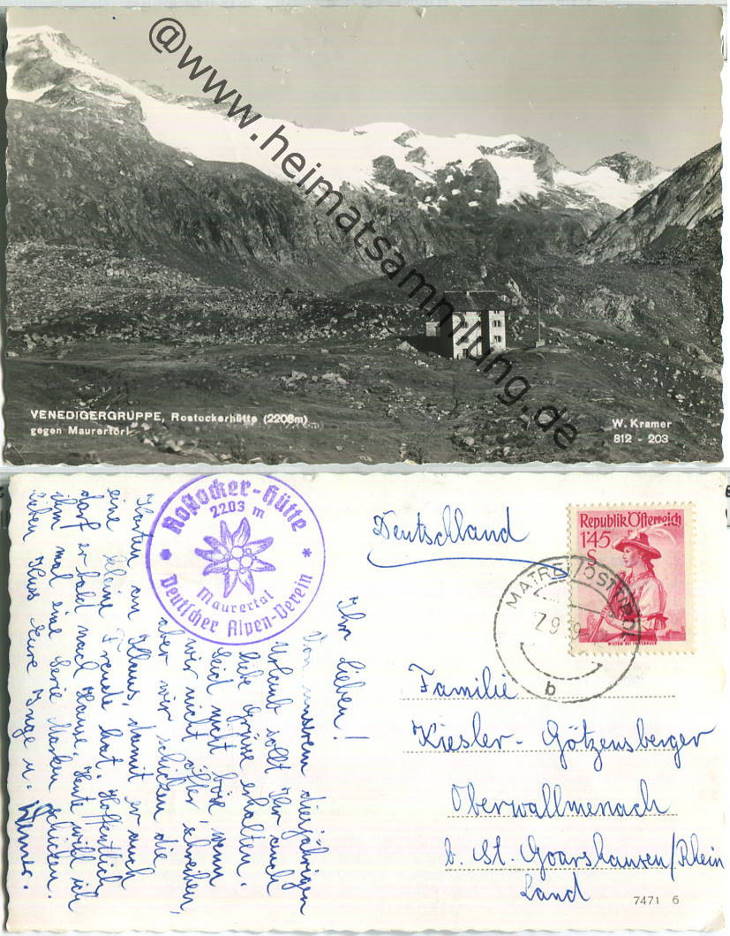 @www.heimatsammlung.de
VENEDIGERGRUPPE, Rostockerhütte (2208m)
gegen Maurertörl
W. Kramer
812 - 203
Roſtocker-Hütte
2203 m
Maurertal
Deutscher Alpen-Verein
Deutschland
Republik Österreich
1'45
S
MATREI/OSTTIROL
7.9.
b
Ihr lieben!
Von unserem diesjährigen
Urlaub sollt Ihr auch
liebe Grüße erhalten.
Seid nicht böse, wenn
wir nicht öfter schreiben,
aber wir schicken die
Karten an Klaus, damit er auch
eine kleine Freude hat. Hoffentlich
darf er bald nach Hause. Heute will ich
ihm mal eine Serie Marken schicken.
Lieben Kuss Eure Inge u.
Familie
Kiesler - Götzensberger
Oberwallmenach
b. St. Goarshausen/Rhein
Land
7471 6